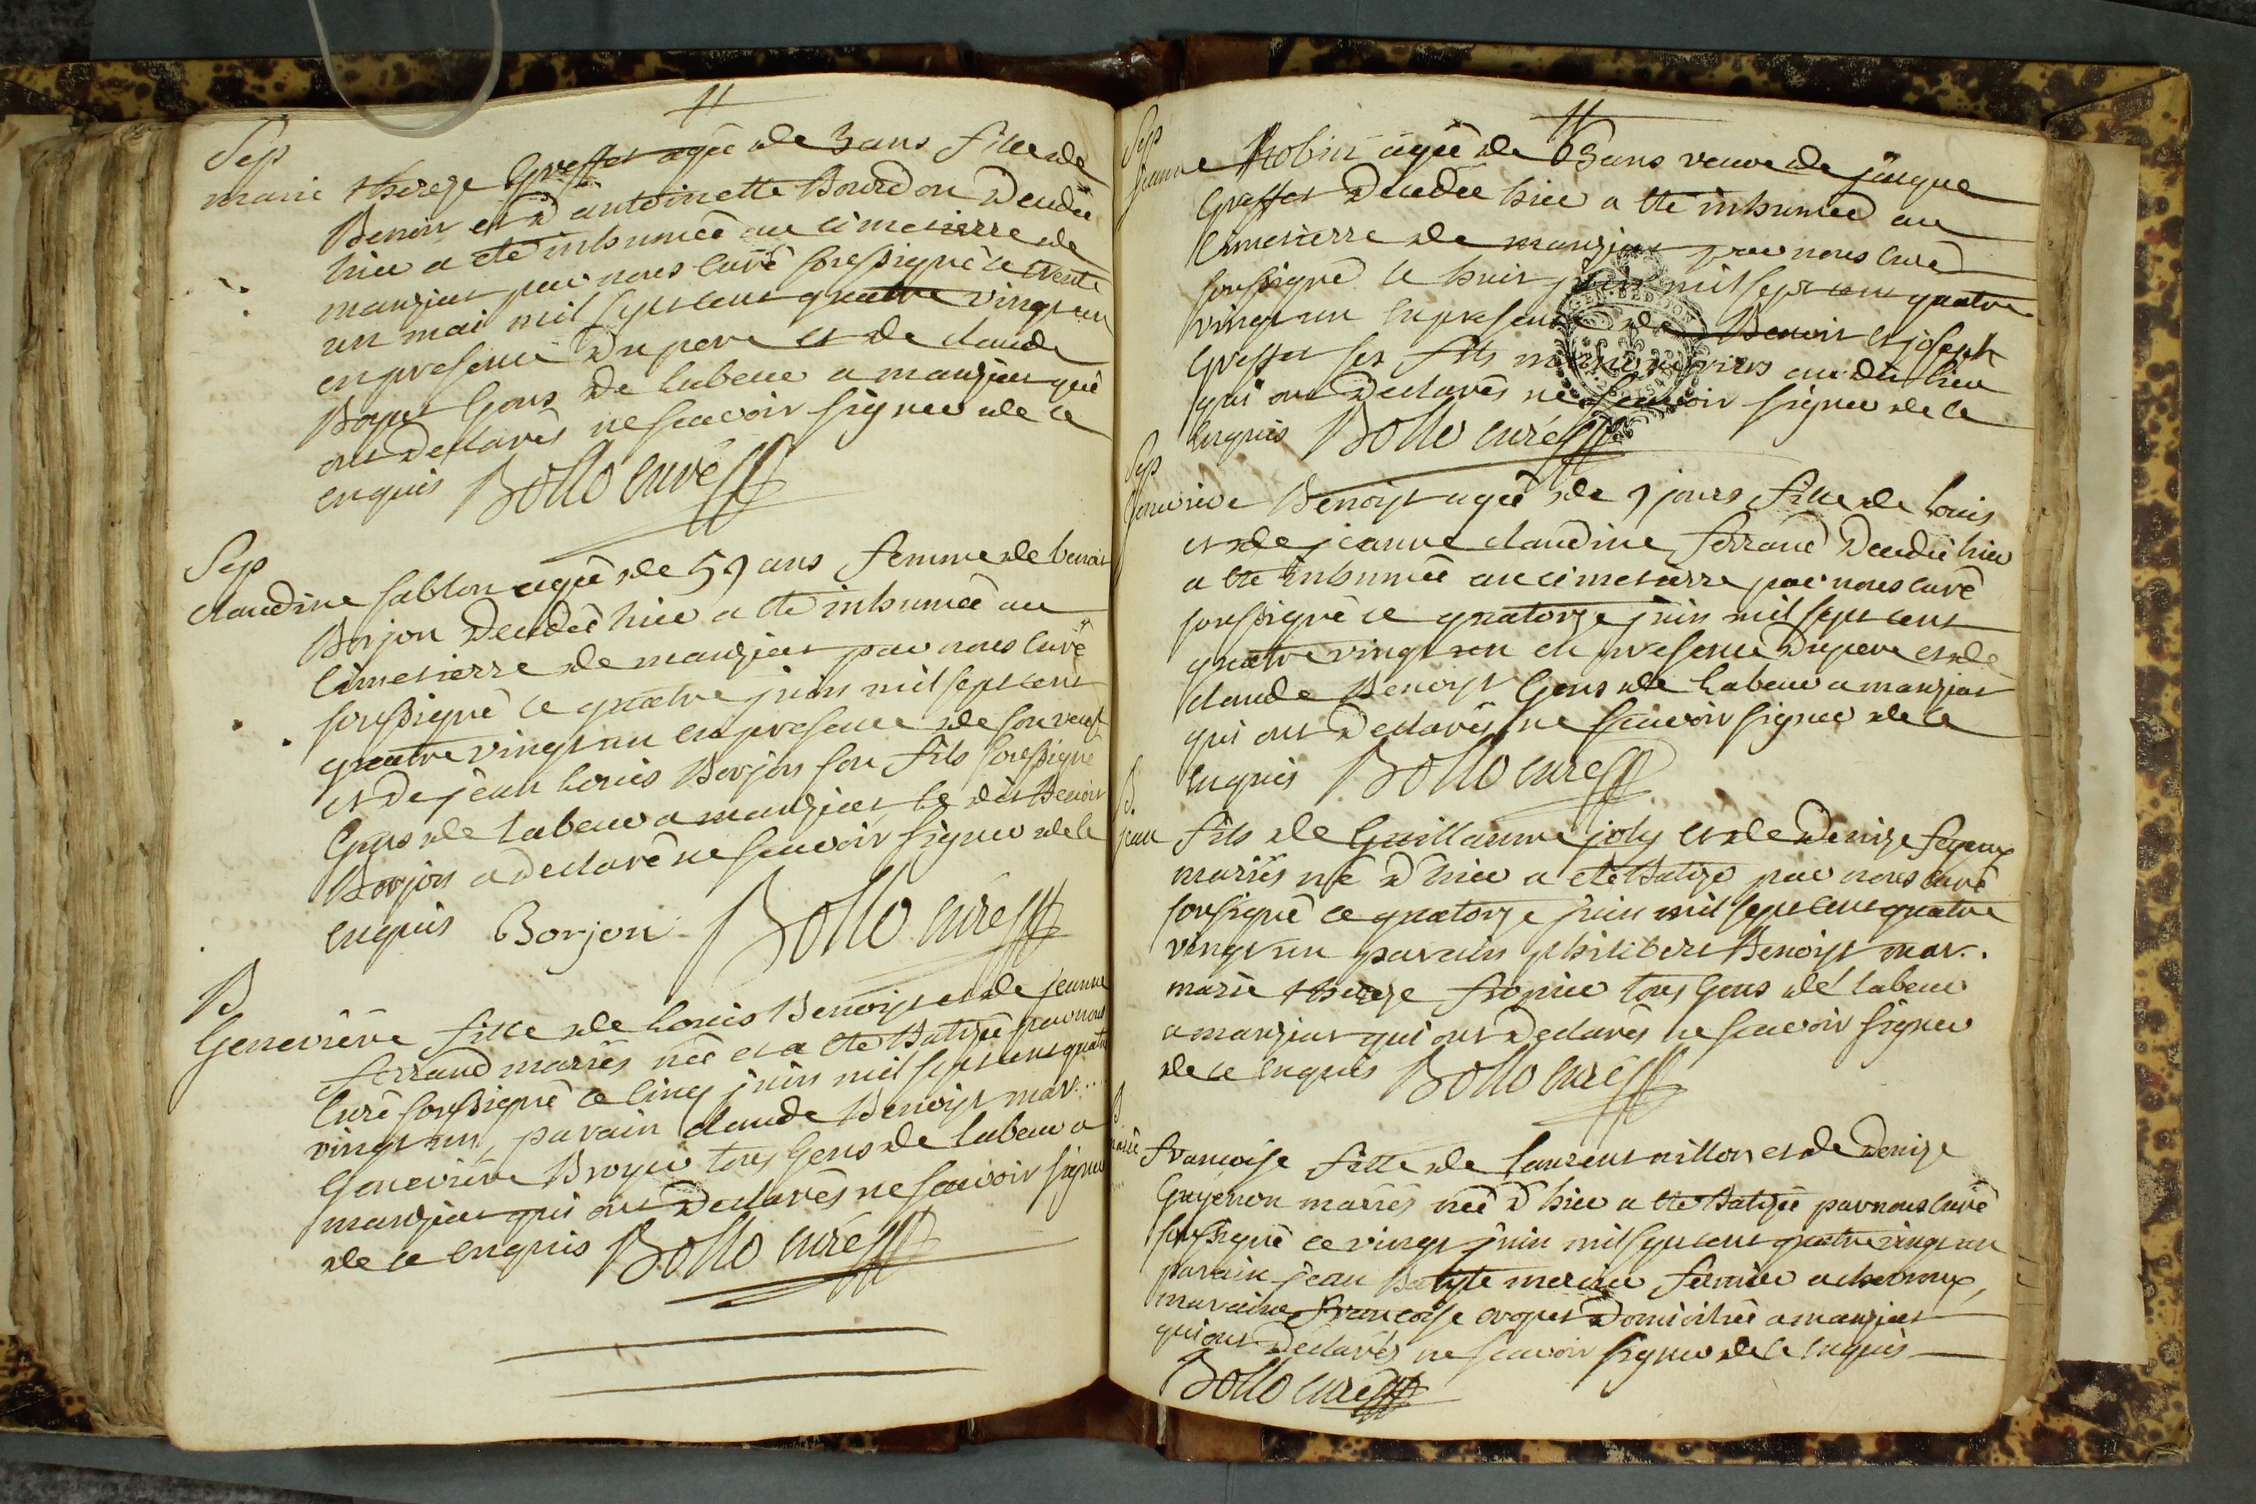 Sep
marie thereze Greffet agée de 3 ans fille de
Benoit et d'antoinette Bourdon Decedée
hier a eté inhumée au cimetierre de
manziat par nous curé soussigné ce trente
un mai mil sept cent quatre vingt un
en presence Du pere et de claude
Boyer Gens De labeur a manziat qui
ont Declarés ne scavoir signer de ce
enquis Bollo curé
Sep
claudine sablon agée de 59 ans femme de benoit
Borjon Decedée hier a eté inhumée au
Cimetierre de manziat par nous curé
soussigné ce quatre juin mil sept cent
quatre vingt un en presence de son veuf
et De jean louis Borjon son fils soussigné
Gens de labeur a manziat, le dit Benoit
Borjon a Declaré ne scavoir signer de ce
enquis Borjon Bollo curé
B
Geneviève fille de louis Benoist et de jeanne
ferrand mariés née et a eté Batizée par nous
Curé soussigné ce cinq juin mil sept cent quatre
vingt un, parain claude Benoist mar...
Geneviève Broyer tous Gens de labeur a
manziat qui ont Declarés ne scavoir signer
de ce enquis Bollo curé
Sep
jeanne Robin agée de 63 ans veuve de jacque
Greffet Decedée hier a eté inhumée au
Cimetierre de manziat par nous curé
soussigné ce huit juin mil sept cent quatre
vingt un en presence de Benoit et joseph
Greffet ses fils au dit lieu
qui ont Declarés ne scavoir signer de ce
enquis Bollo curé
Sep
Genevieve Benoist agée de 9 jours fille de louis
et de jeanne claudine ferrand Decedée hier
a eté inhumée au cimetierre par nous curé
soussigné ce quatorze juin mil sept cent
quatre vingt un en presence Du pere et de
claude Benoist Gens de labeur a manziat
qui ont Declarés ne scavoir signer de ce
enquis Bollo curé
B.
jean fils de Guillaume joly et de Denize feyeux
mariés né d'hier a eté Batizé par nous curé
sousigné ce quatorze juin mil sept cent quatre
vingt un parain philibert Benoist mar..
marie thereze tous Gens de labeur
a manziat qui ont Declarés ne scavoir signer
de ce enquis Bollo curé
B
marie francoise fille de laurent nillon et de Denize
Guyenon mariés née d'hier a eté Batizée par nous curé
soussigné ce vingt juin mil sept cent quatre vingt un
parain jean Batiste mercier fermier a chevroux,
maraine francoise Domiciliée a manziat
qui ont Declarés ne scavoir signer de ce enquis
Bollo curé